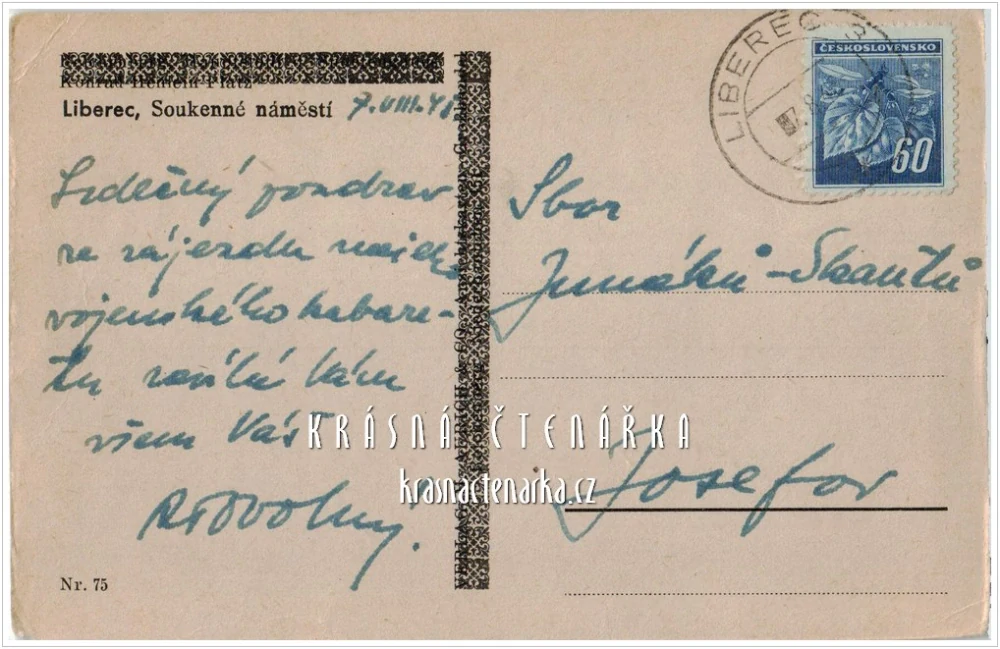 Konrad Henlein-Platz
Liberec, Soukenné náměstí
7.VIII.
LIBEREC 3
ČESKOSLOVENSKO
60
Srdečný pozdrav
ze zájezdu našeho
vojenského kabare-
tu zasílá Vám
všem Váš
Sbor
Junáků-Skautů
Josefov
KRÁSNÁ ČTENÁŘKA
krasnactenarka.cz
Nr. 75